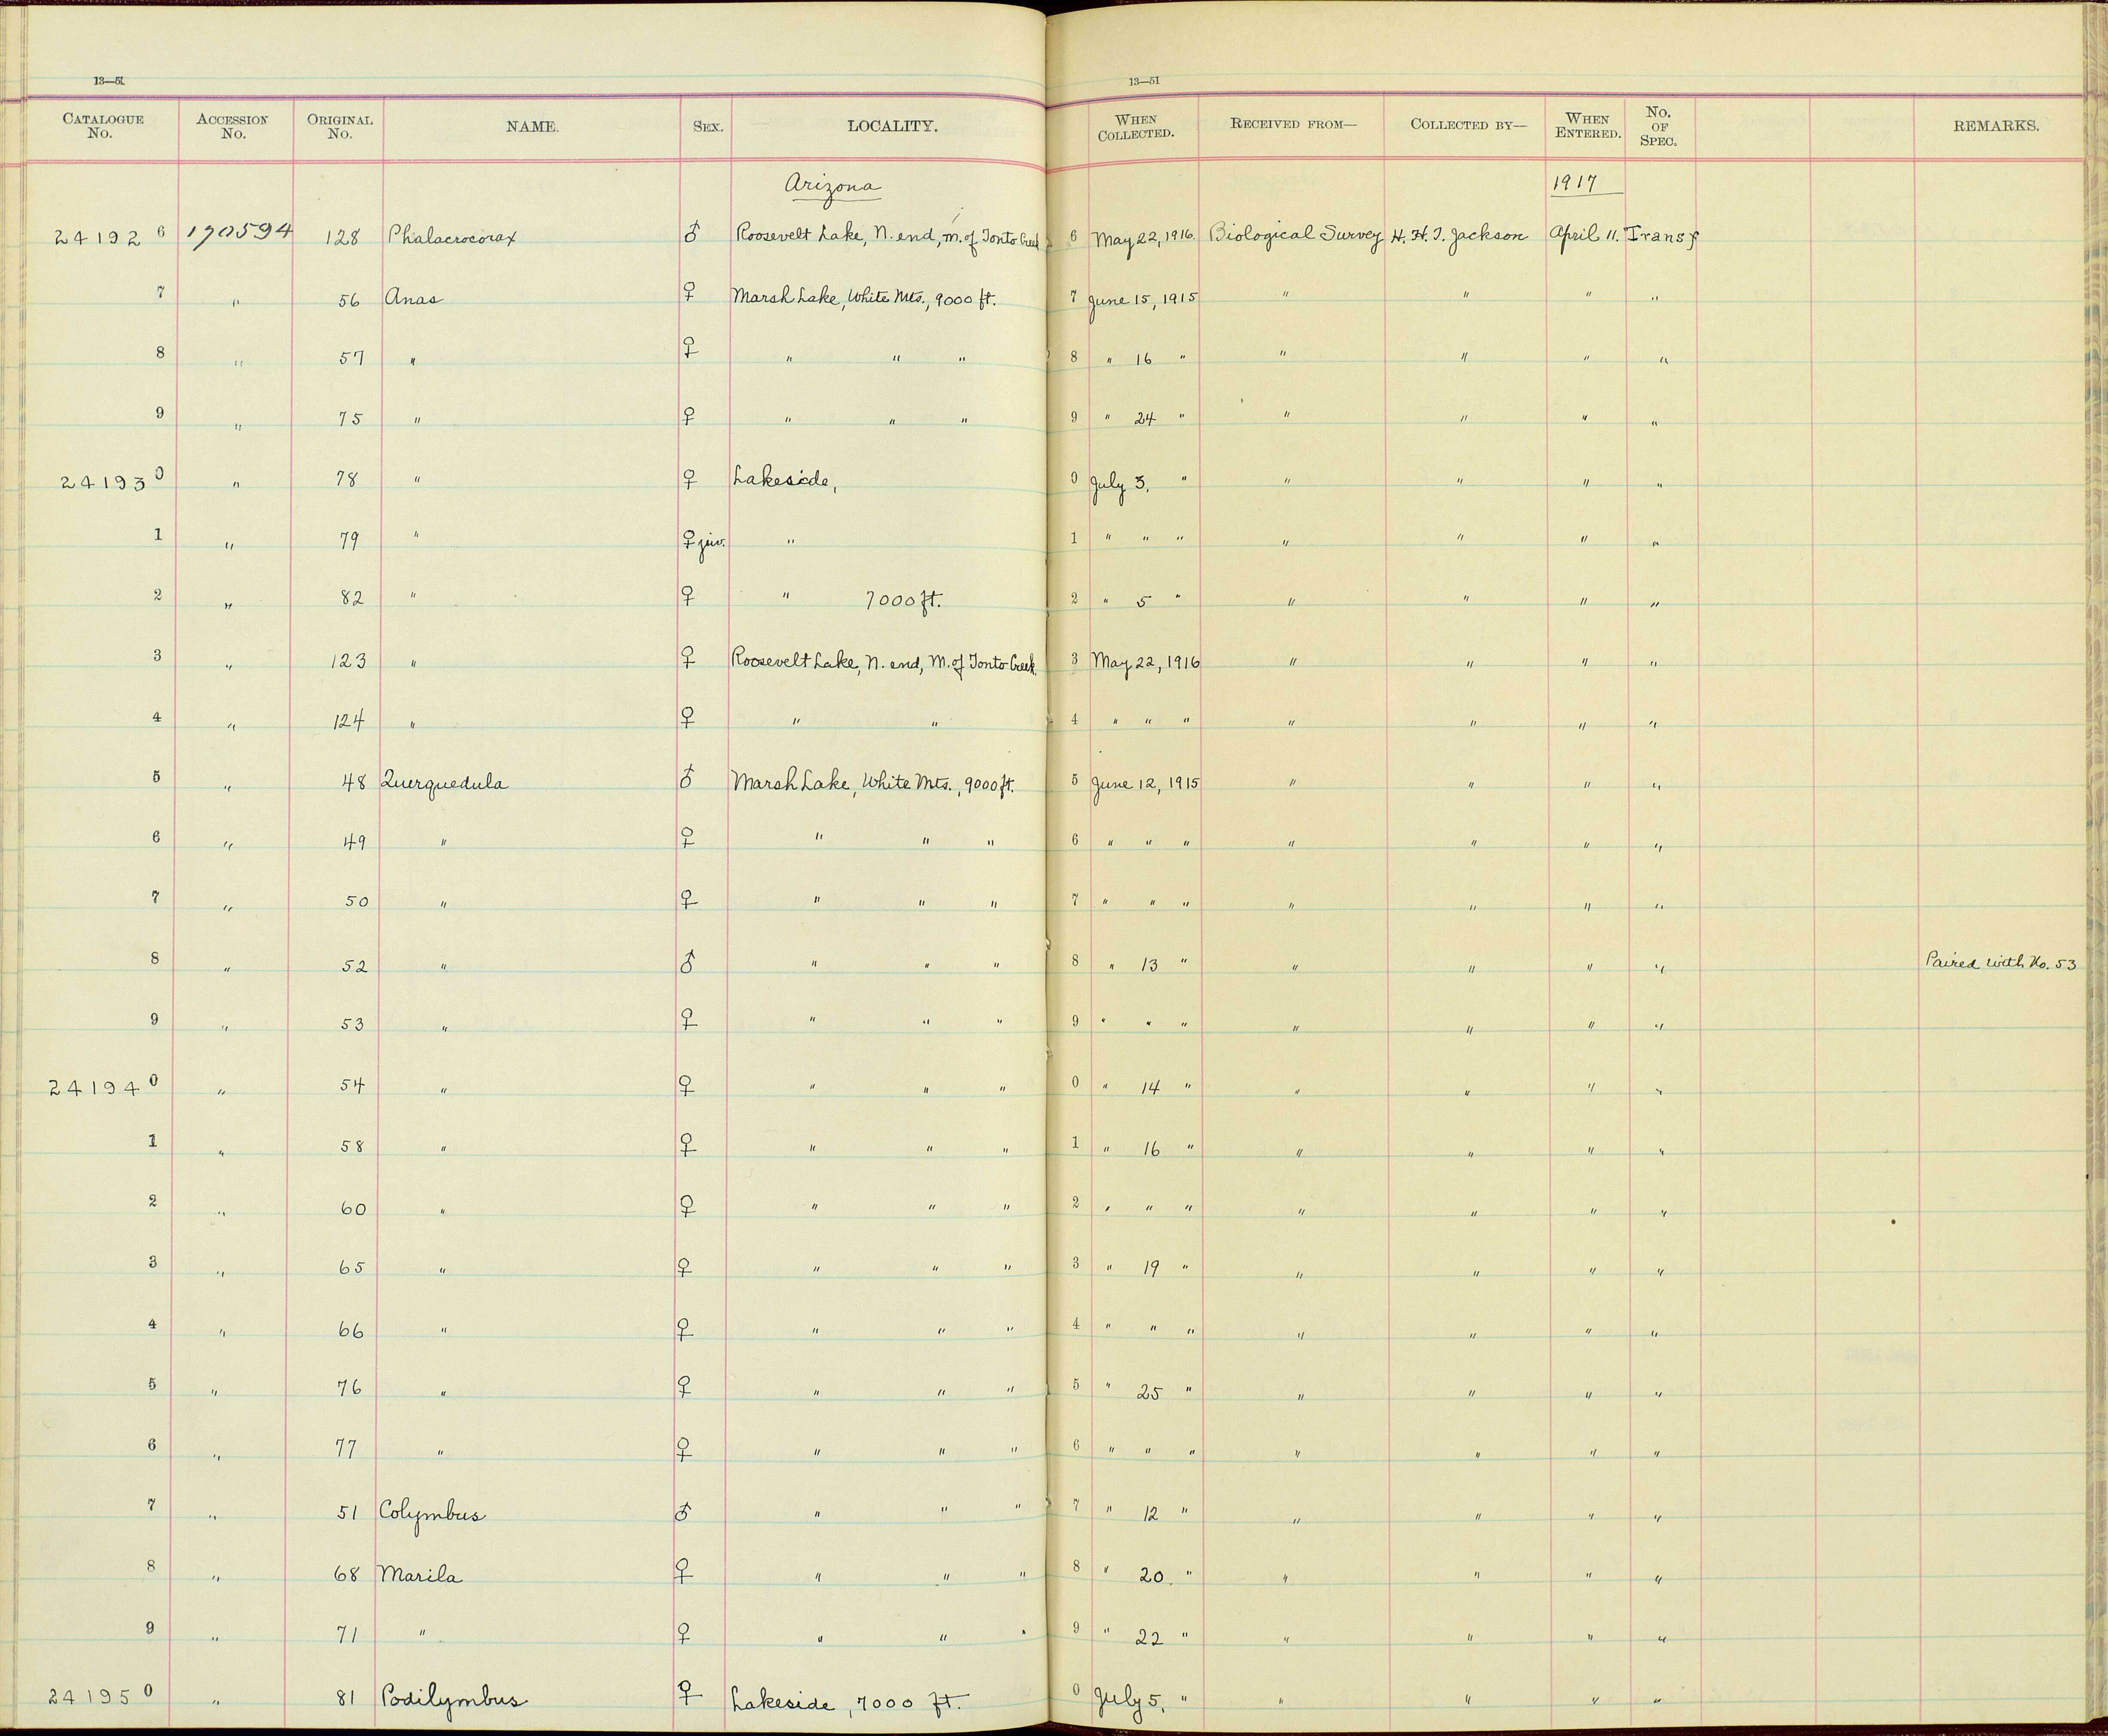 13—51 13—51
CATALOGUE No. ACCESSION No. ORIGINAL No. NAME. SEX. LOCALITY. WHEN COLLECTED. RECEIVED FROM— COLLECTED BY— WHEN ENTERED. No. OF SPEC. REMARKS.
Arizona 1917
241926 190594 128 Phalacrocorax ♂ Roosevelt Lake, N. end, M. of Tonto Creek 6 May 22, 1916. Biological Survey H. H. T. Jackson April 11. Transf
7 " 56 Anas ♀ Marsh Lake, White Mts., 9000 ft. 7 June 15, 1915 " " " "
8 " 57 " ♀ " " " 8 " 16 " " " " "
9 " 75 " ♀ " " " 9 " 24 " " " " "
241930 " 78 " ♀ Lakeside, 0 July 3, " " " " "
1 " 79 " ♀ juv. " 1 " " " " " " "
2 " 82 " ♀ " 7000 ft. 2 " 5 " " " " "
3 " 123 " ♀ Roosevelt Lake, N. end, M. of Tonto Creek 3 May 22, 1916 " " " "
4 " 124 " ♀ " " 4 " " " " " " "
5 " 48 Querquedula ♂ Marsh Lake, White Mts., 9000 ft. 5 June 12, 1915 " " " "
6 " 49 " ♀ " " " 6 " " " " " " "
7 " 50 " ♀ " " " 7 " " " " " " "
8 " 52 " ♂ " " " 8 " 13 " " " " " Paired with No. 53
9 " 53 " ♀ " " " 9 " " " " " " "
241940 " 54 " ♀ " " " 0 " 14 " " " " "
1 " 58 " ♀ " " " 1 " 16 " " " " "
2 " 60 " ♀ " " " 2 " " " " " " "
3 " 65 " ♀ " " " 3 " 19 " " " " "
4 " 66 " ♀ " " " 4 " " " " " " "
5 " 76 " ♀ " " " 5 " 25 " " " " "
6 " 77 " ♀ " " " 6 " " " " " " "
7 " 51 Colymbus ♂ " " " 7 " 12 " " " " "
8 " 68 Marila ♀ " " " 8 " 20. " " " " "
9 " 71 " ♀ " " " 9 " 22 " " " " "
241950 " 81 Podilymbus ♀ Lakeside, 7000 ft. 0 July 5, " " " " "